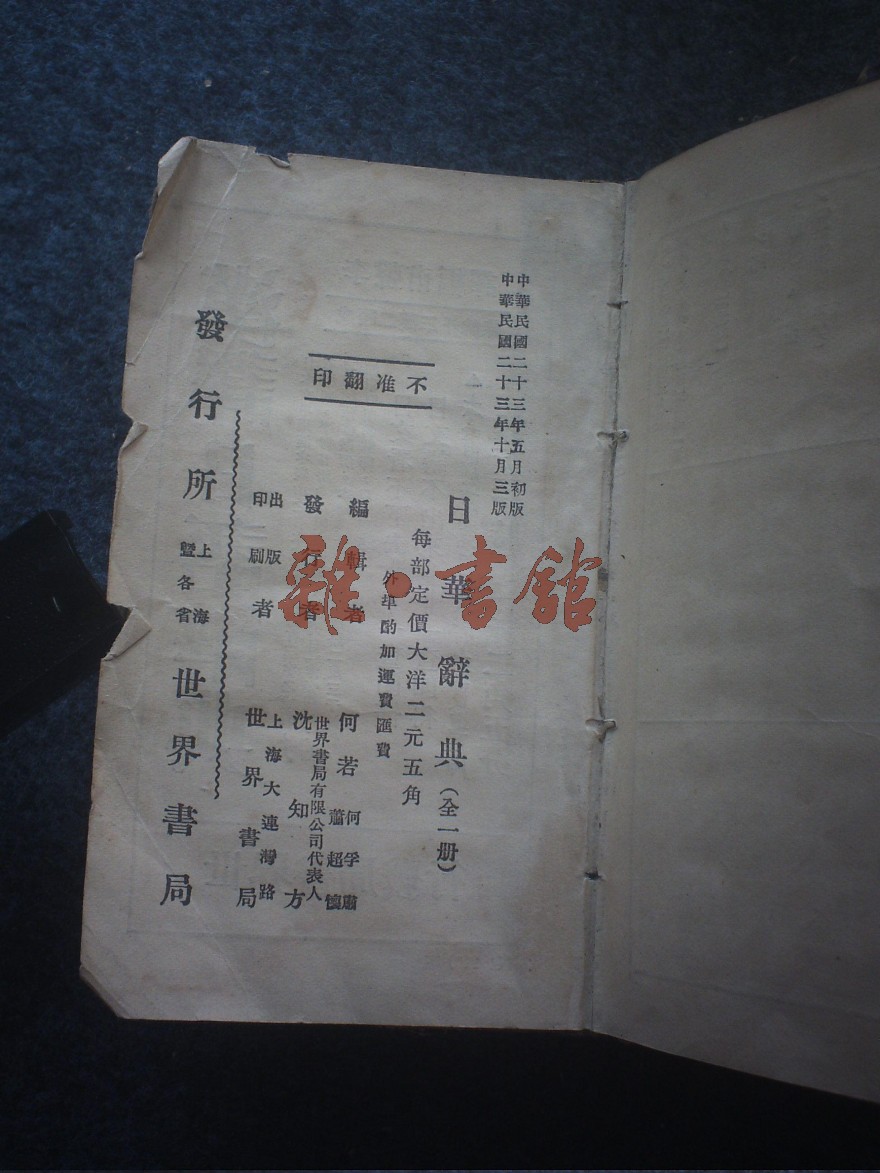 中華民國二十三年五月初版
中華民國二十三年十月三版
日華辭典（全一册）
每部定價大洋二元五角
外埠酌加運費匯費
不准翻印
編輯者
何若
何孚
蕭超
發行者
世界書局有限公司代表人
沈知方
出版
印刷
者
上海大連灣路
世界書局
發行所
上海
暨各省
世界書局
雜·書館